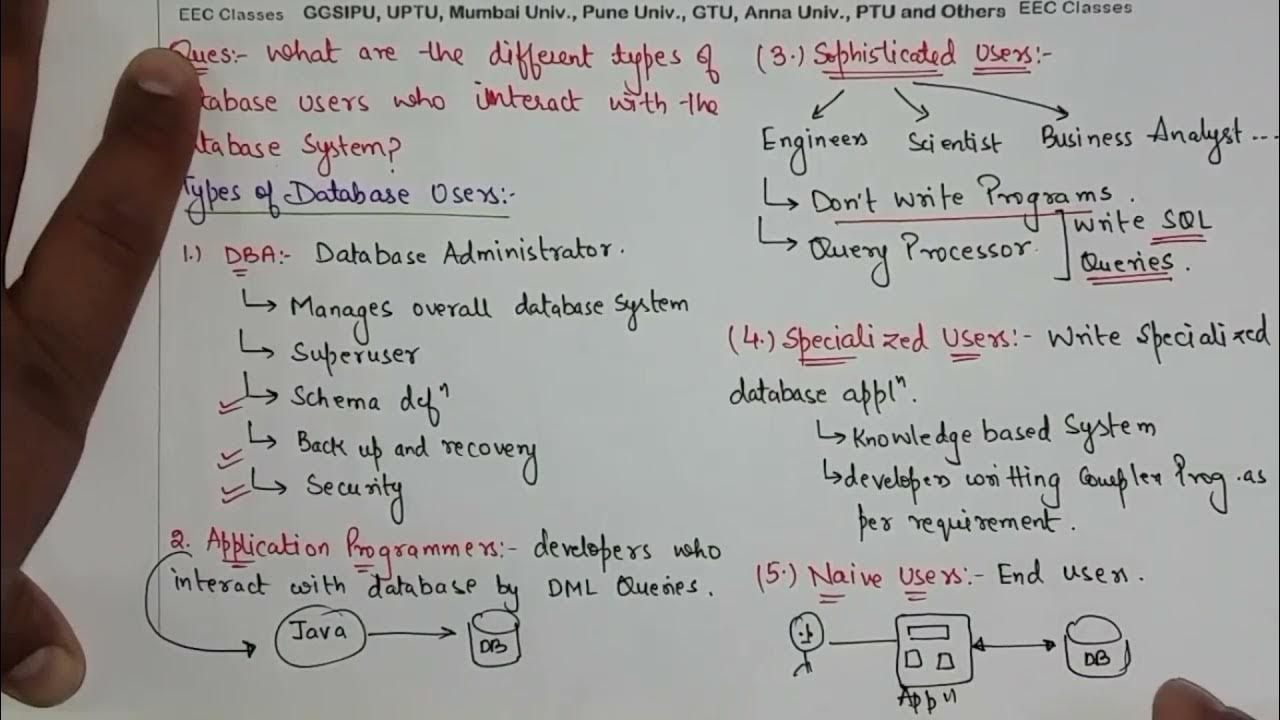 EEC Classes GGSIPU, UPTU, Mumbai Univ., Pune Univ., GTU, Anna Univ., PTU and Others EEC Classes
Ques:- What are the different types of
tabase users who interact with the
tabase System?
Types of Database Users:-
1.) DBA:- Database Administrator.
↳ Manages overall database system
↳ Superuser
✓ ↳ Schema defⁿ
✓ ↳ Back up and recovery
✓ ↳ Security
2. Application Programmers:- developers who
interact with database by DML Queries.
Java → DB
(3.) Sophisticated Users:-
Engineers Scientist Business Analyst ...
↳ Don't write Programs.
↳ Query Processor.
Write SQL
Queries.
(4.) Specialized Users:- Write specialized
database applⁿ.
↳ Knowledge based System
↳ developers writting Complex Prog. as
per requirement.
(5.) Naive Users:- End user.
DB
Appⁿ